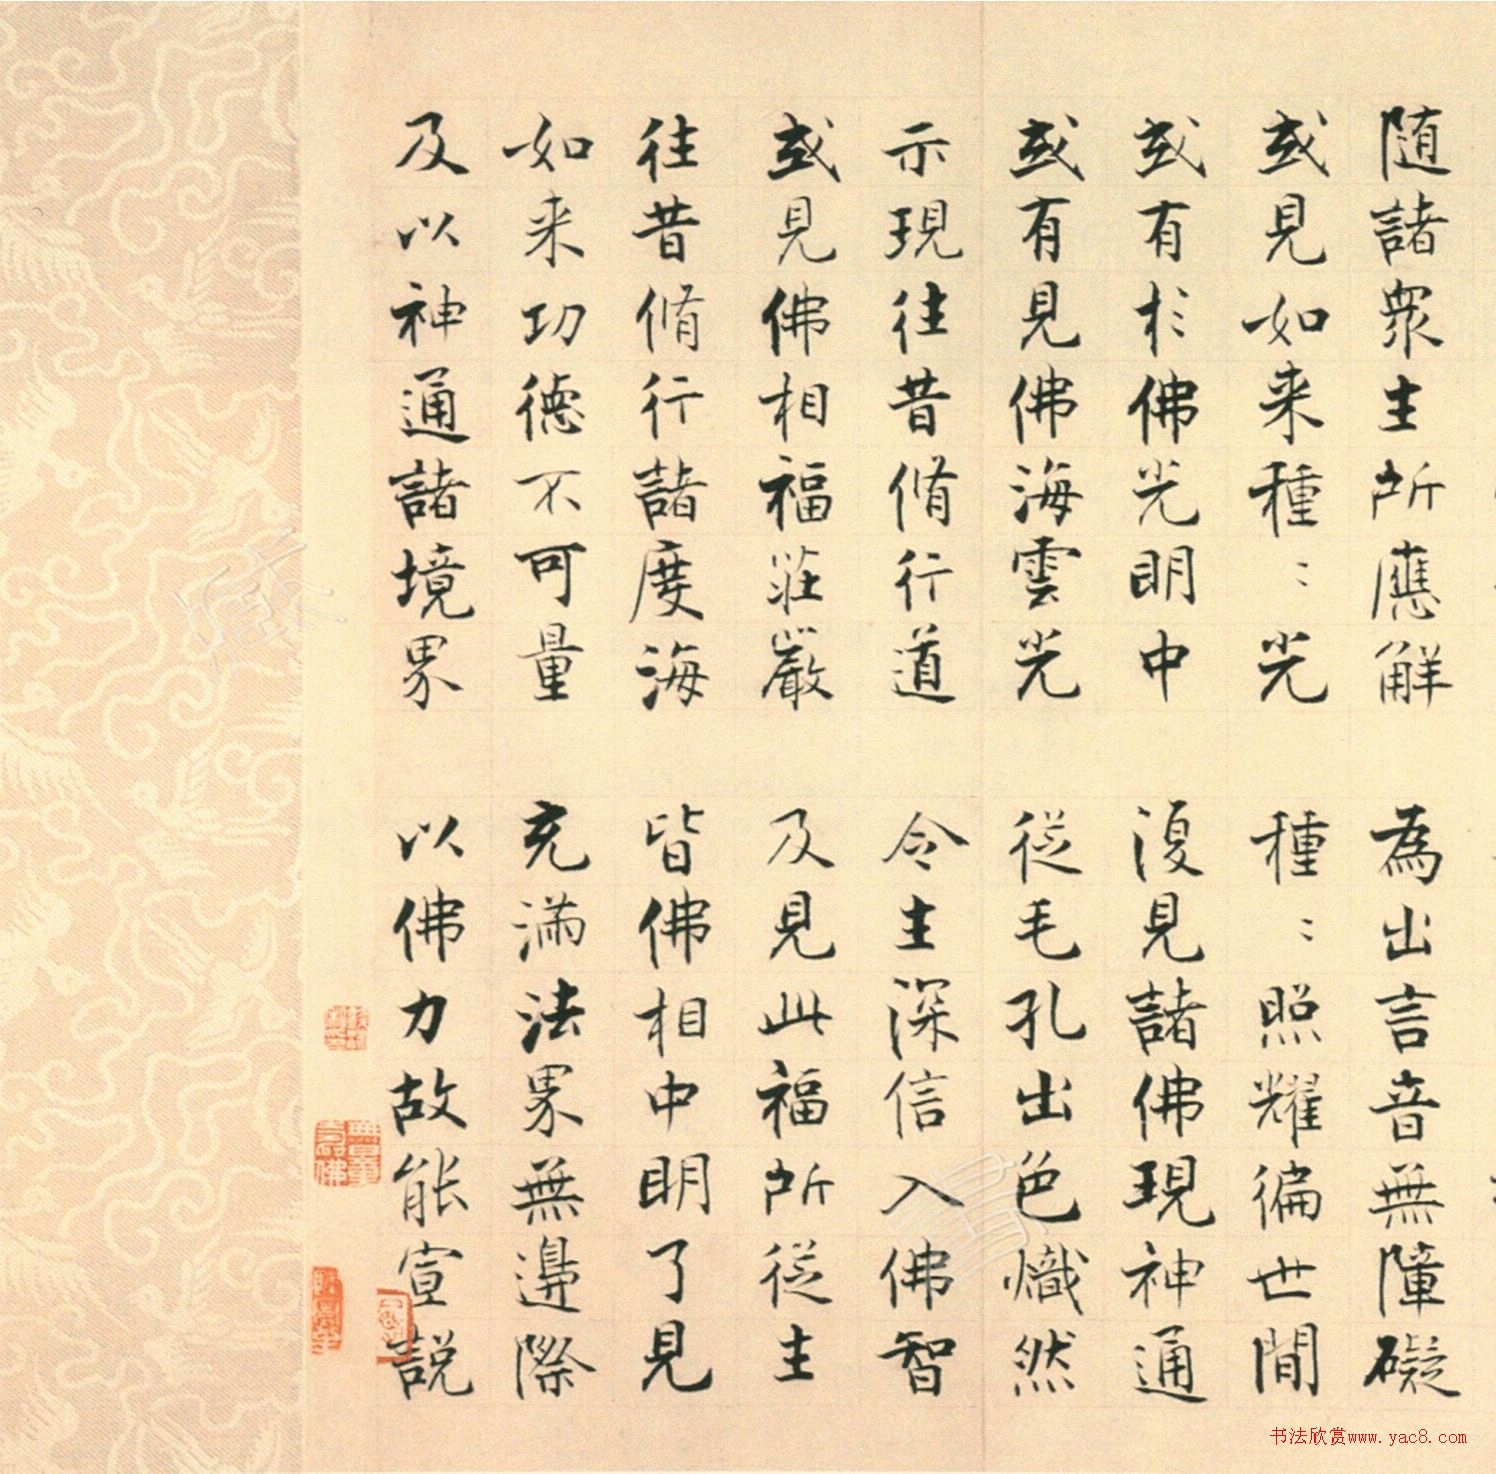 随諸衆生所應解 為出言音無障礙
或見如来種〻光 種〻照耀徧世間
或有於佛光明中 復見諸佛現神通
或有見佛海雲光 從毛孔出色熾然
示現往昔脩行道 令生深信入佛智
或見佛相福莊嚴 及見此福所從生
往昔脩行諸度海 皆佛相中明了見
如来功德不可量 充滿法界無邊際
及以神通諸境界 以佛力故能宣説
书法欣赏www.yac8.com